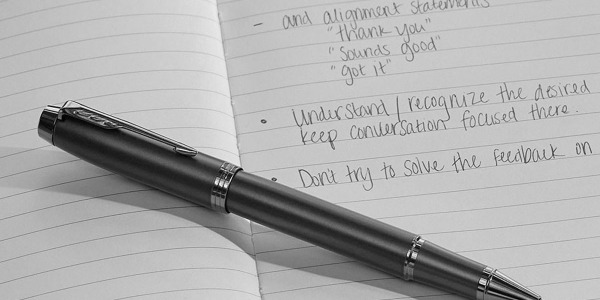 - and alignment statements
"thank you"
"sounds good"
"got it"
• Understand / recognize the desired
keep conversation focused there.
• Don't try to solve the feedback on